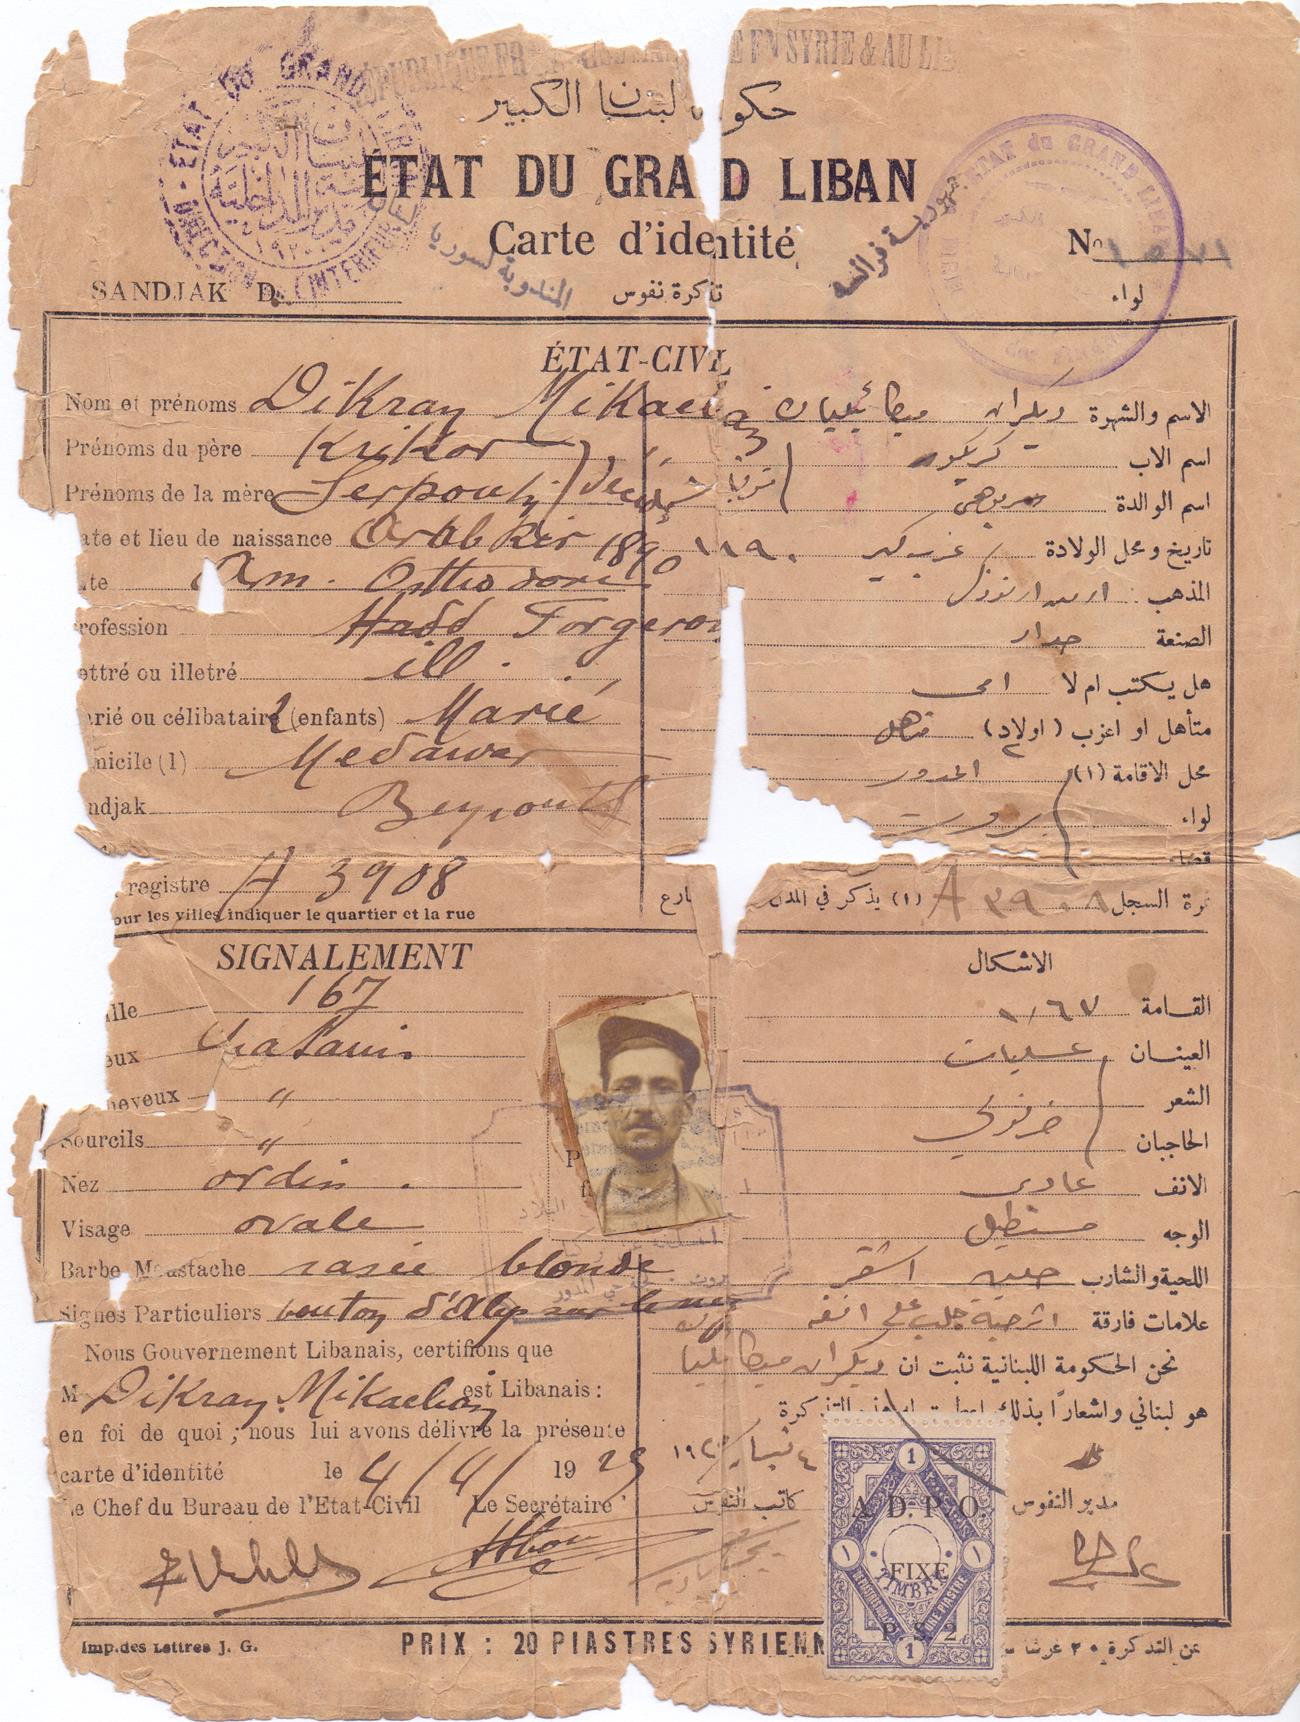 حكومة لبنان الكبير
ÉTAT DU GRAND LIBAN
Carte d'identité
تذكرة نفوس
المندوبية لسوريا
جمهورية فرانسه
Nº
SANDJAK D
لواء
ÉTAT-CIVIL
Nom et prénoms Dikran Mikaelian
ديكران ميكائيليان الاسم والشهرة
Prénoms du père Krikor
كريكور اسم الاب
Prénoms de la mère Serpouhi
سربوهي اسم الوالدة
ate et lieu de naissance Arabkir 1890
١٨٩٠ عربكير تاريخ ومحل الولادة
te Arm. Orthodoxe
المذهب
rofession Hadd Forgeron
حداد الصنعة
ettré ou illetré ill.
امي هل يكتب ام لا
arié ou célibataire 2 (enfants) Marié
متأهل متأهل او اعزب (اولاد) ٢
micile (1) Medawar
المدور محل الاقامة (١)
ndjak Beyrouth
بيروت لواء
قضاء
registre A 3908
A ٣٩٠٨ نمرة السجل
our les villes indiquer le quartier et la rue
(١) يذكر في المدن
SIGNALEMENT
الاشكال
ille 167
١/٦٧ القامة
eux Chatains
عسليات العينان
heveux "
الشعر
Sourcils "
الحاجبان
Nez ordin.
عادي الانف
Visage ovale
مستطيل الوجه
Barbe Moustache rasée blonde
حليق اشقر اللحية والشارب
Signes Particuliers bouton d'Alep sur le nez
اثر حبة حلب على انفه علامات فارقة
Nous Gouvernement Libanais, certifions que
M Dikran Mikaelian est Libanais :
نحن الحكومة اللبنانية نثبت ان ديكران ميكائيليان
en foi de quoi, nous lui avons délivré la présente
هو لبناني واشعاراً بذلك هذه التذكرة
carte d'identité le 4/4/ 1925
٤ نيسان ١٩٢٥
Le Chef du Bureau de l'Etat-Civil Le Secrétaire
كاتب النفوس مدير النفوس
A. D. P. O.
FIXE
TIMBRE
P. S. 2
UNE PIASTRE
1
Imp. des Lettres J. G.
PRIX : 20 PIASTRES SYRIENN
ثمن التذكرة ٢٠ غرشا